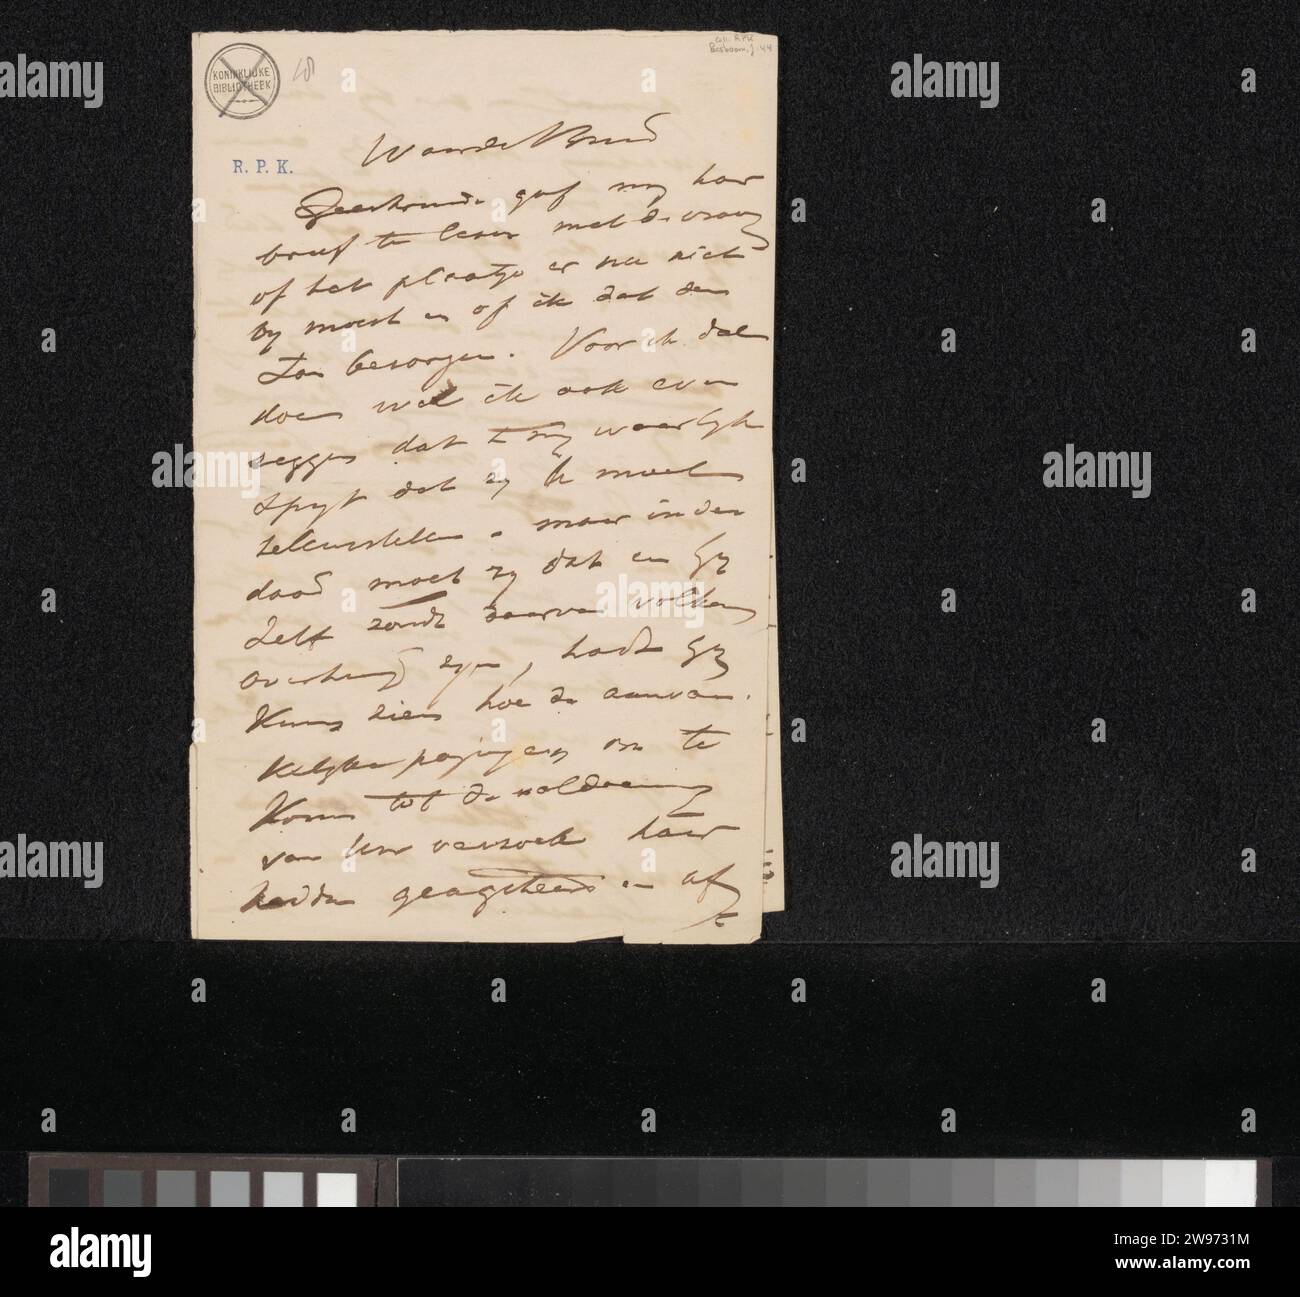 KONINKLIJKE
BIBLIOTHEEK
coll. RPK
Bosboom, J. 44
R. P. K.
Waarde Vriend
Geertruida gaf my haar
brief te lezen met de vraag
of het plaatje er nu niet
by moest en of ik dat dan
zou bezorgen. Voor ik dat
doe wil ik ook even
zeggen dat 't my waarlyk
spyt dat zy U moet
teleurstellen - maar in der
daad moet zy dat en Gy
zelf zoudt daarvan volkomen
overtuigd zyn, hadt Gy
kunnen zien hoe de aanvan-
kelyke pogingen om te
komen tot de voldoening
van Uw verzoek haar
hadden geagiteerd en af
alamy
a
alamy
Image ID: 2W9731M
www.alamy.com